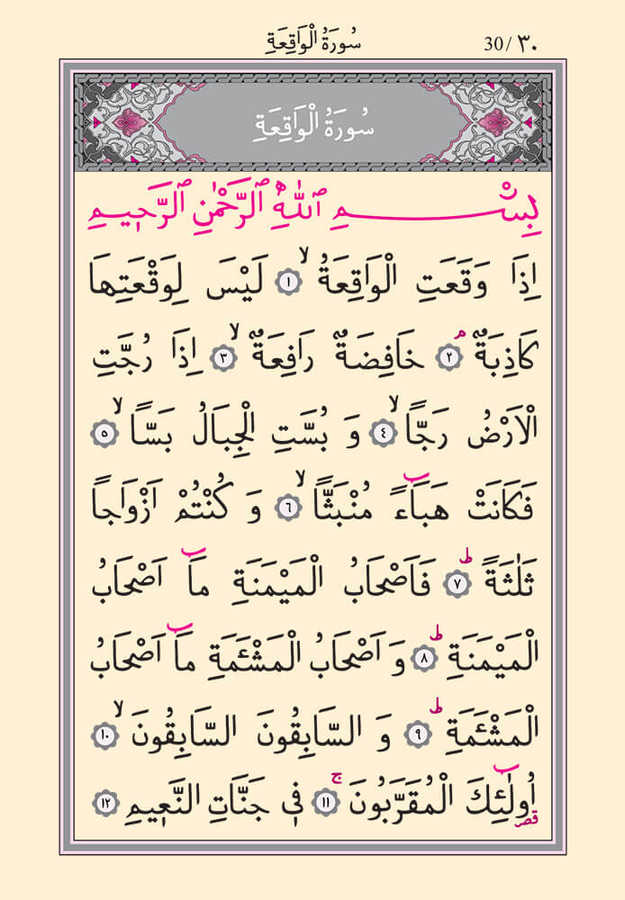 سُورَةُ الْوَاقِعَةِ 30/٣٠
سُورَةُ الْوَاقِعَةِ
بِسْمِ ٱللّٰهِ ٱلرَّحْمٰنِ ٱلرَّح۪يمِ
اِذَا وَقَعَتِ الْوَاقِعَةُۙ ١ لَيْسَ لِوَقْعَتِهَا
كَاذِبَةٌۢ ٢ خَافِضَةٌ رَافِعَةٌۙ ٣ اِذَا رُجَّتِ
الْاَرْضُ رَجًّاۙ ٤ وَ بُسَّتِ الْجِبَالُ بَسًّاۙ ٥
فَكَانَتْ هَبَٓاءً مُنْبَثًّاۙ ٦ وَ كُنْتُمْ اَزْوَاجًا
ثَلٰثَةًؕ ٧ فَاَصْحَابُ الْمَيْمَنَةِ مَٓا اَصْحَابُ
الْمَيْمَنَةِؕ ٨ وَ اَصْحَابُ الْمَشْـَٔمَةِ مَٓا اَصْحَابُ
الْمَشْـَٔمَةِؕ ٩ وَ السَّابِقُونَ السَّابِقُونَۙ ١٠
اُو۬لٰٓئِكَ الْمُقَرَّبُونَۚ ١١ ف۪ي جَنَّاتِ النَّع۪يمِ ١٢
قصر